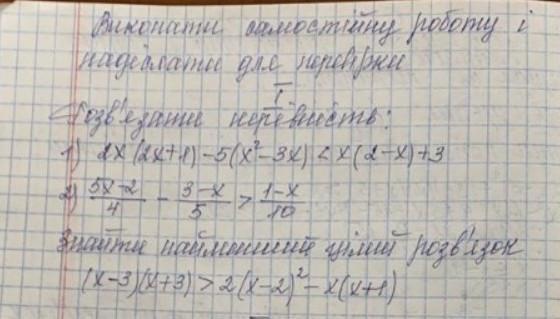 Виконати самостійну роботу і
надіслати для перевірки
I
Розв'язати нерівність:
1) 2x(2x+1)-5(x²-3x)<x(2-x)+3
2) (5x-2)/4 - (3-x)/5 > (1-x)/10
Знайти найменший цілий розв'язок
(x-3)(x+3)>2(x-2)²-x(x+1)